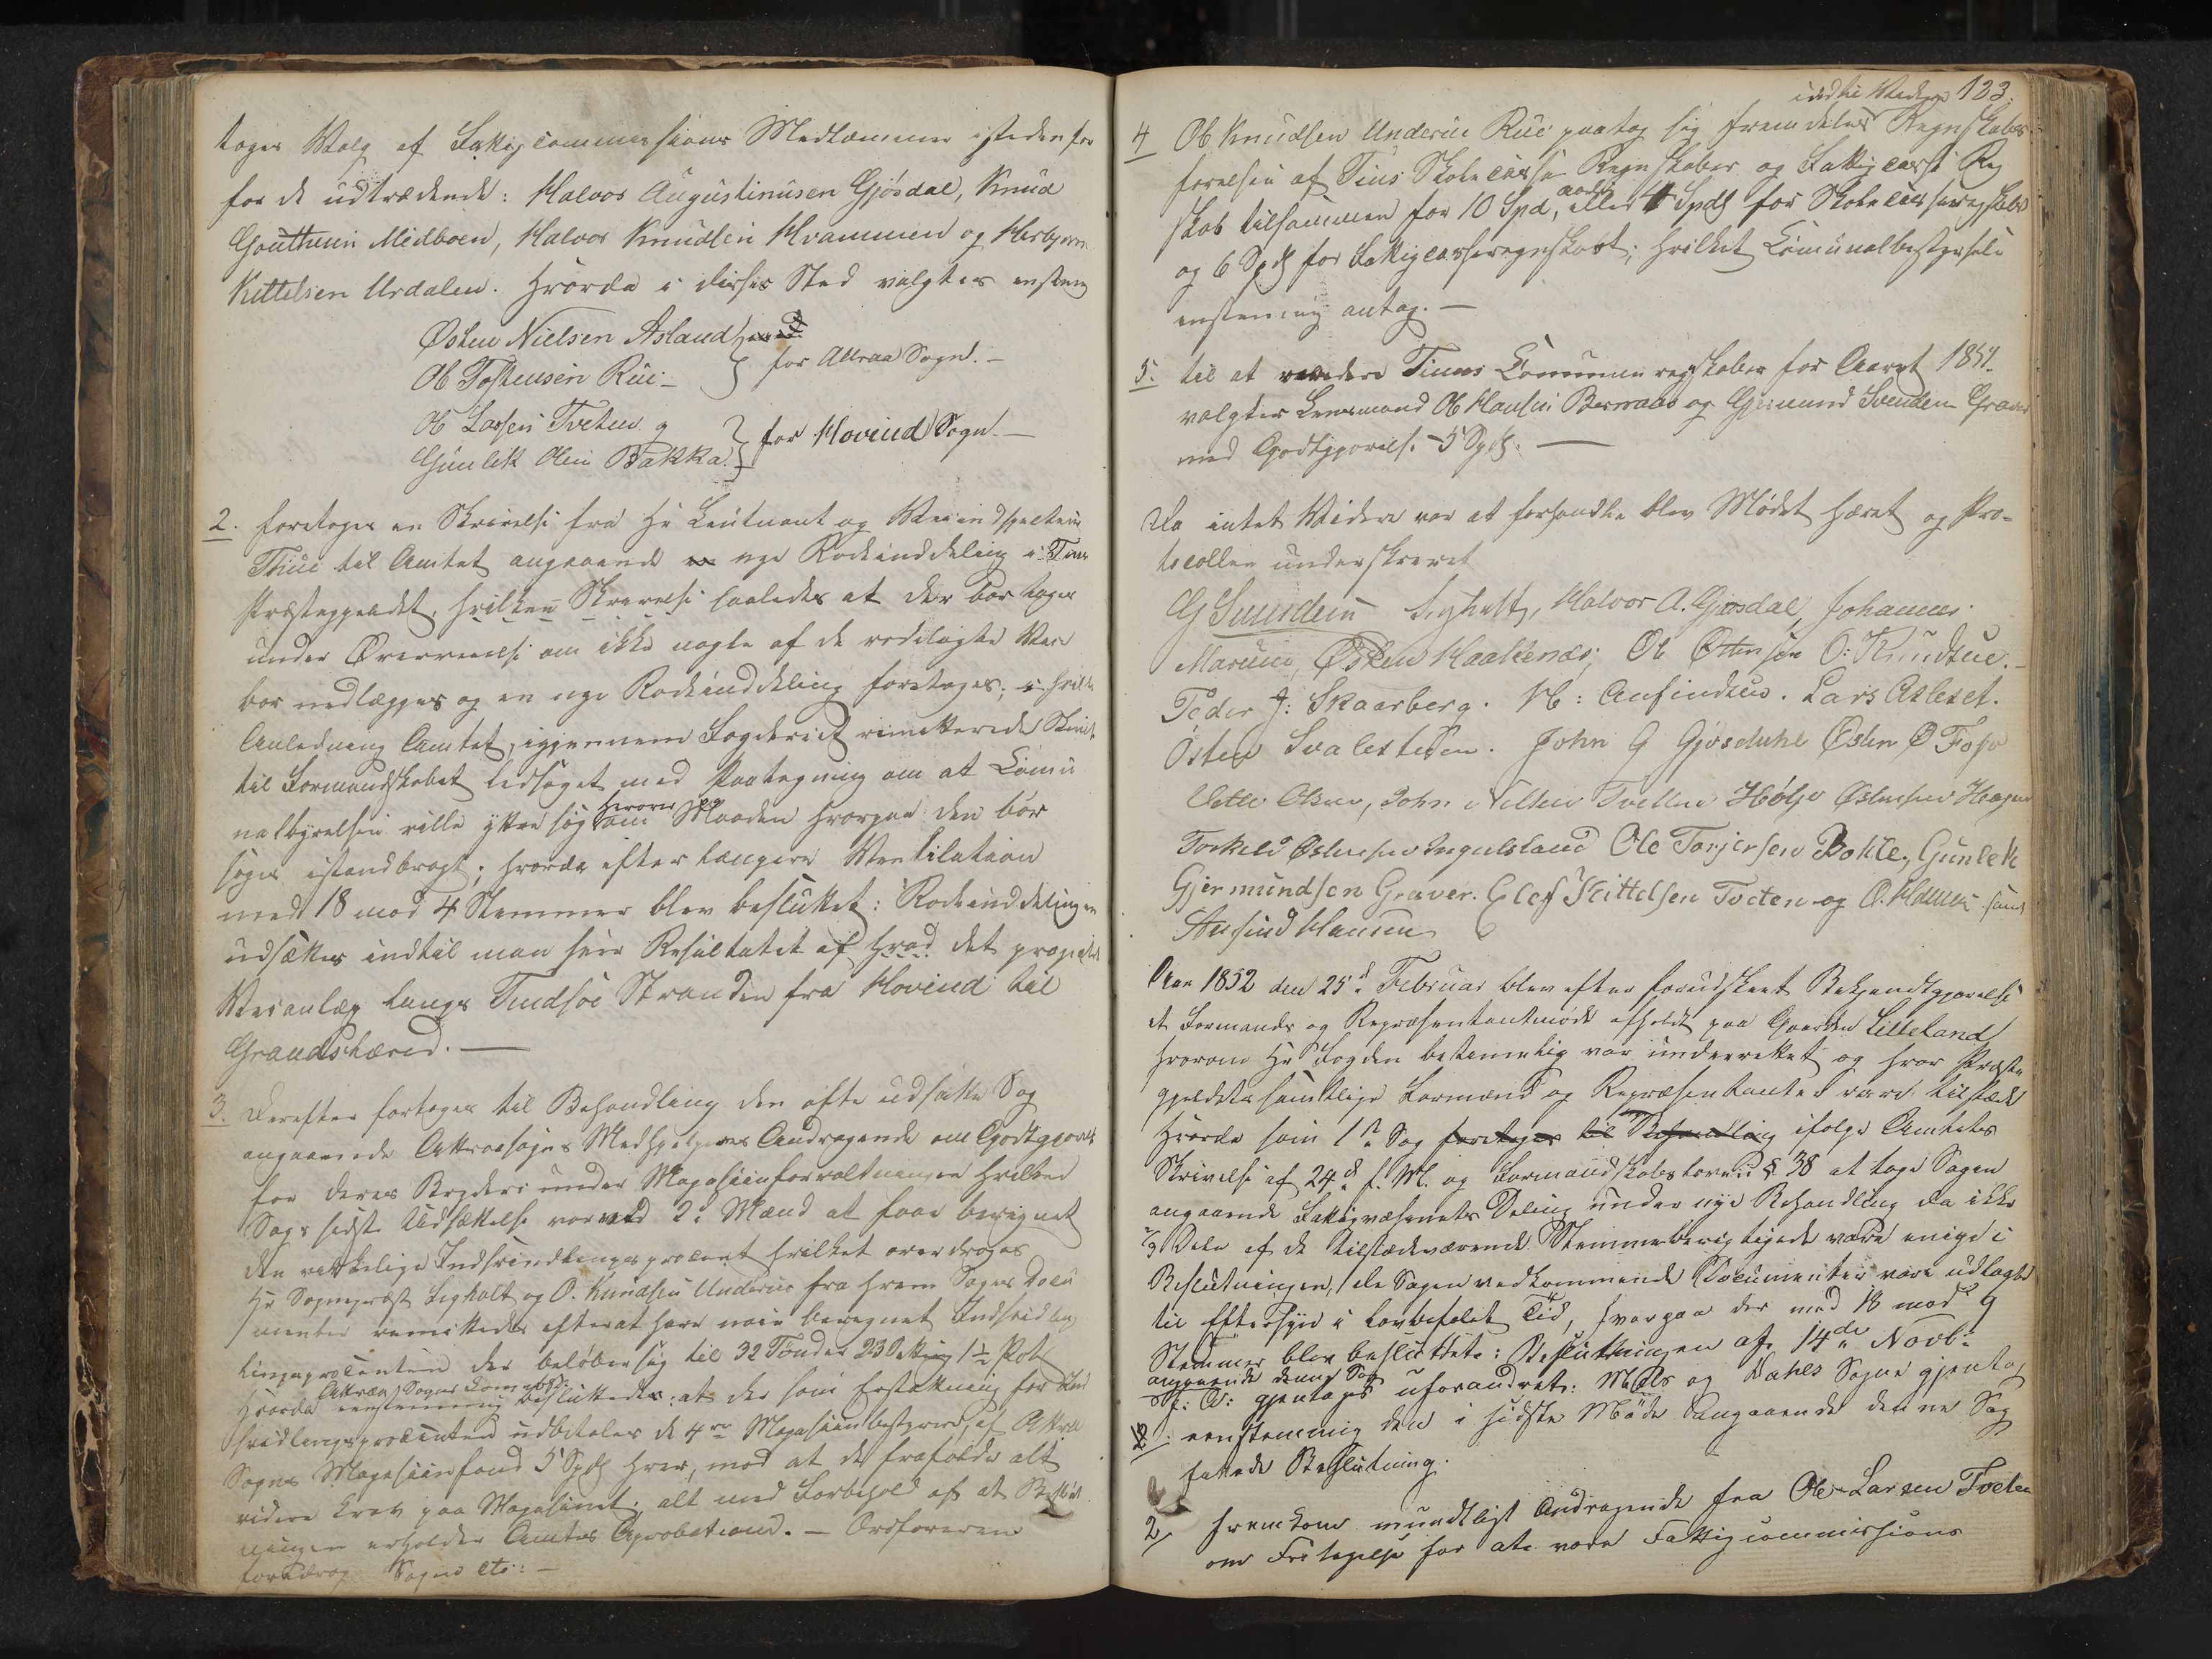 toges Valg af Fattigcommissions Medlemmer istedenfor
for de udtrædende: Halvor Augustinusen Gjøsdal, Knud
Gouthusin Midbøen, Halvor Knudsen Hvammen og Herbjørn
Kittelsen Urdalen. Hvorda i disses Sted valgtes enstem
Østen Nielsen Asland
Ol Tostensen Rue
for Attraa Sogn. –
Ol Larsen Tveten og
Gunlek Olsen Bakka.
for Hovind Sogn. –
2. foretoges en Skrivelse fra Hr Leutnant og Veiindspecteur
Thue til Amtet angaaende en nye Rodeinddeling i Tins
Præstegjeldet, hvilken Skrivelse saaledes at der bør tages
under Overveielse om ikke nogle af de rodelagte Veie
bør nedlægges og en nye Rodeinddeling foretages; i hvilken
Anledning Amtet, igjennem Fogderiet remitterede Skriv
til Formandskabet ledsaget med Paategning om at Comu
nalbyrelsen ville yttre sig herover og om Maaden hvorpaa den bør
søges istandbragt; hvorda efter længere Ventilation
med 18 mod 4 Stemmer blev besluttet: Rodeinddelingen
udsættes indtil man seer Resultatet af hvad det projecte
Veianlæg langs Tindsøe Stranden fra Hovind til
Grandshæred. –
3. Derefter fortoges til Behandling den ofte udsatte Sag
angaaende Attraasogns Medhjelperes Andragende om Godtgjørelse
for deres Bryderi under Magasinforvaltningen hvilken
Sags sidste Udsættelse var ved 2de Mænd at faae beregnet
den virkelige Indsvindlingsprocent hvilket overdroges
Hr Sogneprest Sighalt og O. Knudsen Underrue fra hvem Sagens Docu
menter remittedes efterat have nøie beregnet Indsvind
lingsprocenten der beløber sig til 32 Tønder 23 Otting 1½ Pot
Hvorda Attraa Sogns Comm. eenstemmig besluttedes: at der som Erstatning for Ind
svindlingsprocenten udbetales de 4re Magasinbestyrere af Attraa
Sogns Magasinfond 5 Spd hver, mod at de frafalde alt
videre Krav paa Magasinet; alt med Forbehold af at Beslut
ningen erholder Amtets Aprobation. – Ordføreren
foredrog Sagen etc: –
indtil Videre 123.
4 Ol Knudsen Underrue Rue paatog sig fremdeles Regnskabs
førelsen af Tins Skolecasse Regnskaber og Fattigcasse Reg
skab tilsammen for 10 Spd, eller 4 Spd for Skolecasseregskabet
og 6 Spd for Fattigcasseregnskabet; hvilket Comunalbestyrelse
enstemmig antog. –
5. til at revidere Tinns Communeregskaber for Aaret 1851.
valgtes Lensmand Ol Hansen Bernaas og Gjermund Svenden Graver
med Godtgjørelse 5 Spd. –
Da intet Videre var at forhandle blev Mødet hævet og Pro-
tocollen underskrevet
G Sunden Sighalt, Halvor A. Gjøsdal, Johannes
Marum, Østen Haakenæs, Ol Ottensen O: Knudsrue. –
Peder J: Skaarberg. H: Anfindsen. Lars Asleset.
Østen Svalestuen. John G Gjøsdahl Østen Ø Fosso
Vetle Olsen, John Nilsen Tvetten Hølje Østensen Hagen
Torkild Østensen Ingulsland Ole Torjersen Bøkle, Gunlek
Gjermundsen Graver. Elef Kittelsen Tveten og O. Hansen samt
Anfind Hansen
Aar 1852 den 25d Februar blev efter forudskeet Bekjendtgjørelse
et Formands og Repræsentantmøde afholdt paa Gaarden Lilleland
hvorom Hr Fogden betimelig var underrettet og hvor Præste
gjeldets samtlige Formænd og Repræsentanter vare tilstæde
Hvorda som 1ste Sag foretoges til Behandling ifølge Amtets
Skrivelse af 24de f. M. og Formandskabslovens § 38 at tage Sagen
angaaende Fattigvæsenets Deling under nye Behandling da ikke
2/3 Dele af de tilstædeværende Stemmeberigtigede vare enige i
Beslutningen, de Sagen vedkommende Documenter vare udlagte
til Eftersyn i lovbefalet Tid, hvorpaa der med 18 mod 9
Stemmer blev besluttet: Beslutningen af 14de Novb:
angaaende denne Sag
f: A: gjentages uforandret: Mæls og Dahls Sogne gjentog
eenstemmig den i sidste Møde angaaende denne Sag
fattede Beslutning.
2/ fremkom mundtligt Andragende fra Ole Larsen Tveten
om Fritagelse for at være Fattigcommissions